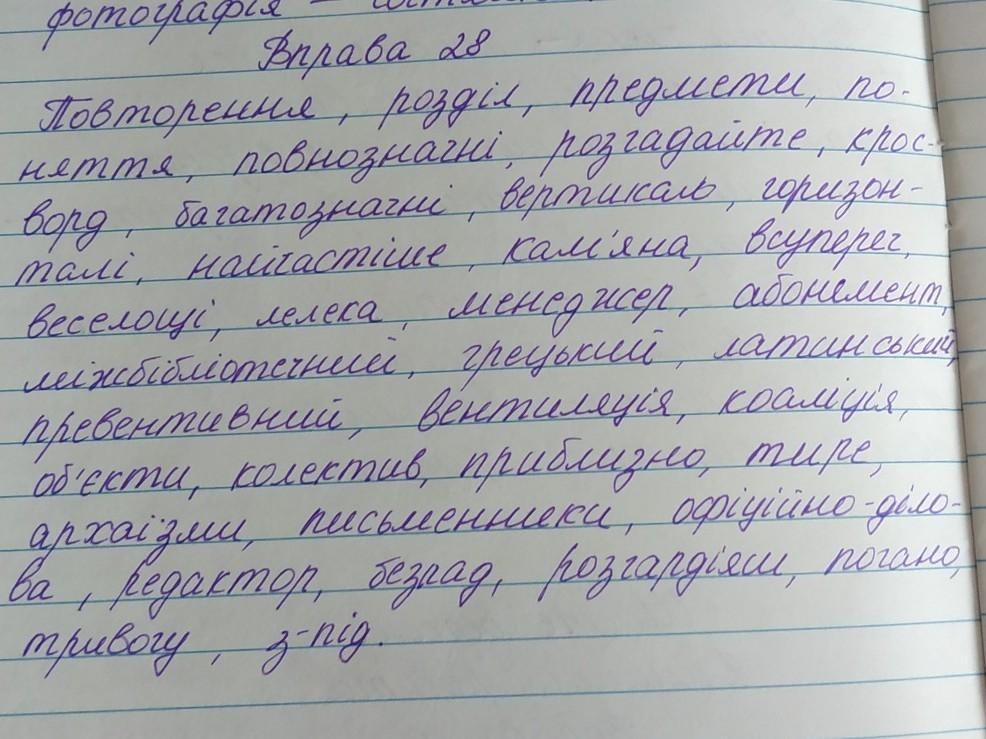 фотографія —
Вправа 28
Повторення, розділ, предмети, по-
няття, повнозначні, розгадайте, крос-
ворд, багатозначні, вертикаль, горизон-
талі, найчастіше, кам'яна, всупереч,
веселощі, лелека, менеджер, абонемент,
міжбібліотечний, грецький, латинський,
превентивний, вентиляція, коаліція,
об'єкти, колектив, приблизно, тире,
архаїзми, письменники, офіційно-діло-
ва, редактор, безлад, розгардіяш, погано,
тривогу, з-під.